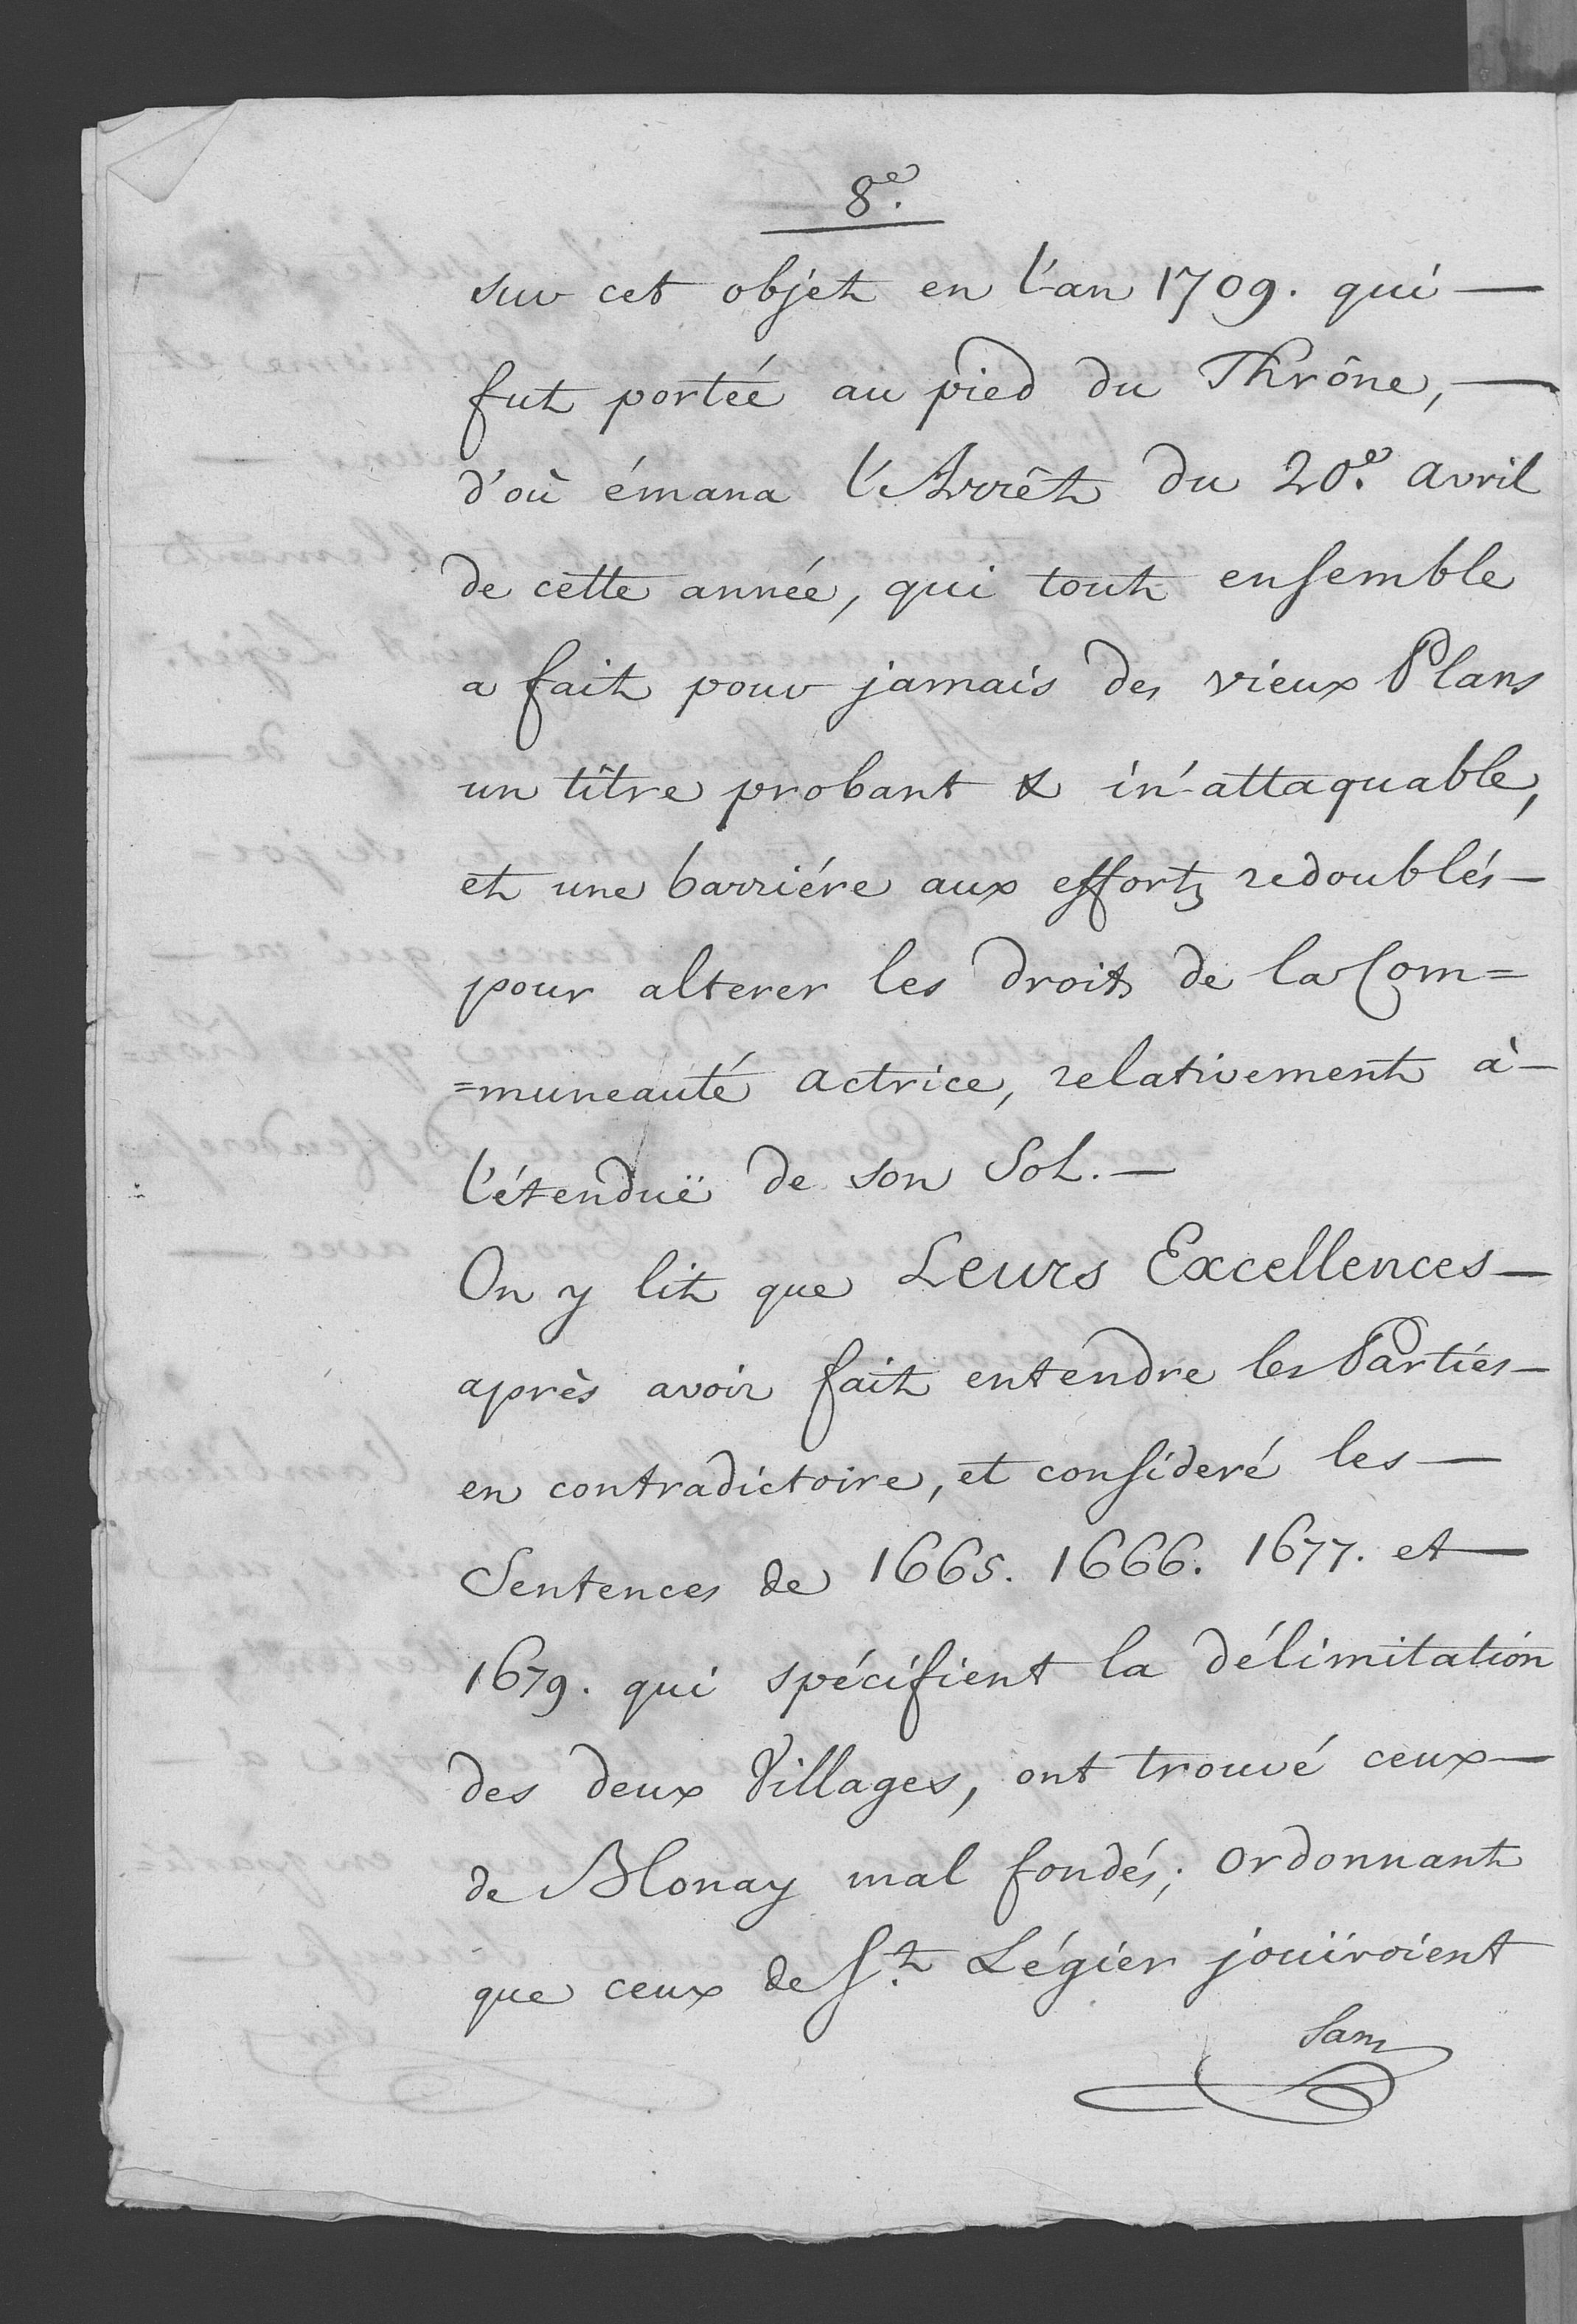 8.e
sur cet objet en l'an 1709. qui —
fut portée au pied du Thrône, —
d'où émana l'Arrêt du 20.e avril
de cette année, qui tout ensemble
a fait pour jamais des vieux Plans
un tître probant & in-attaquable,
et une barriére aux efforts redoublés —
pour alterer les droits de la Com=
=muneauté actrice, relativement à —
l'étenduë de son Sol. —
On y lit que Leurs Excellences —
après avoir fait entendre les Parties —
en contradictoire, et consideré les —
Sentences de 1665. 1666. 1677. et —
1679. qui spécifient la délimitation
des deux Villages, ont trouvé ceux —
de Blonay mal fondés; ordonnant
que ceux de St. Légier jouïroient
Sans